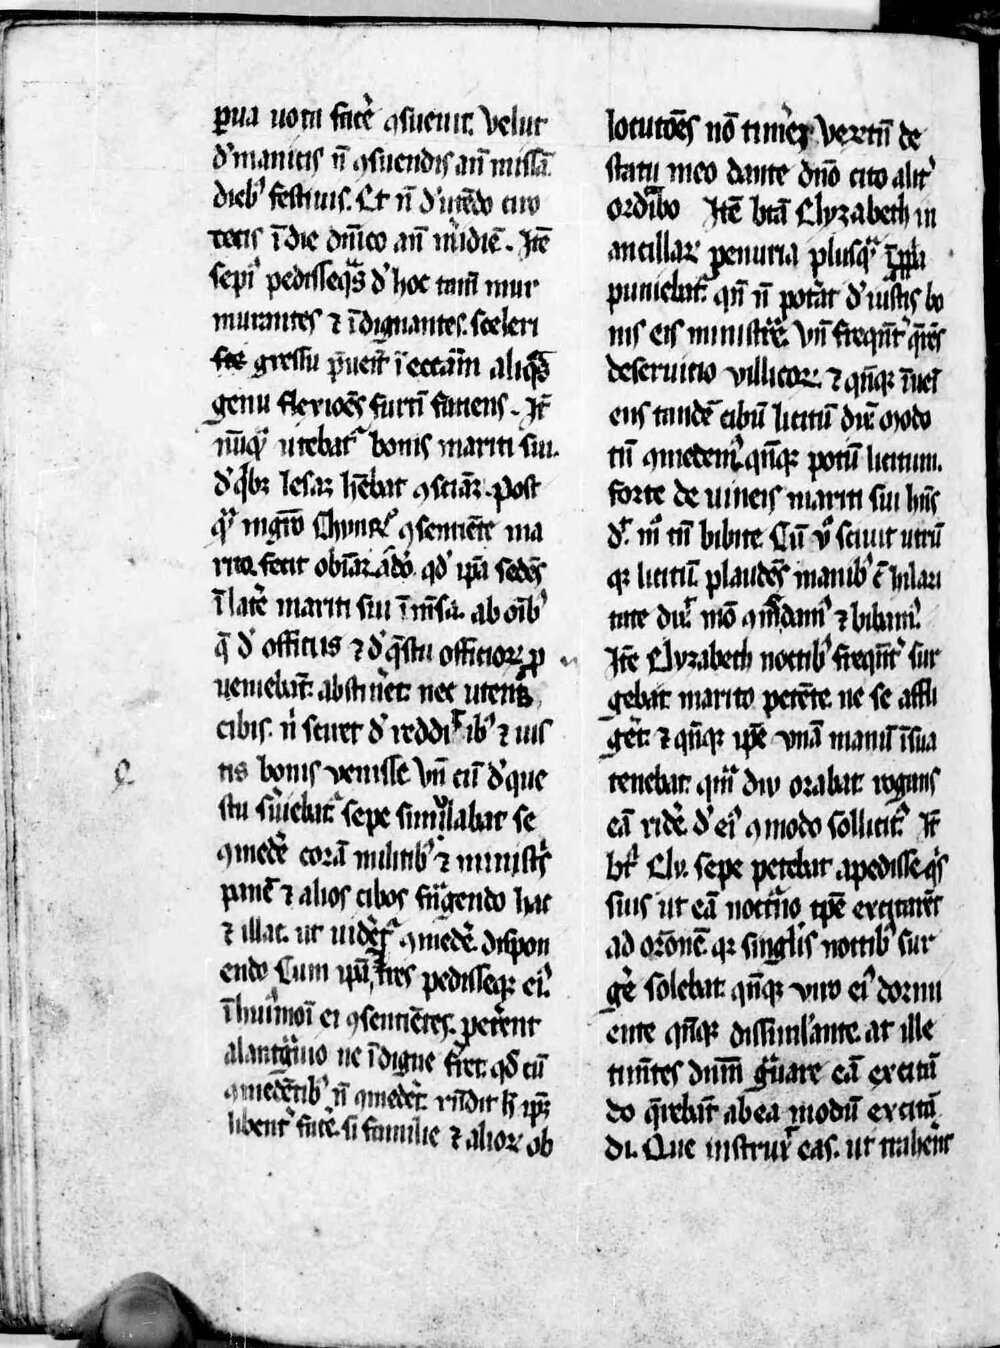 p̱ua uota fac̄e ꝯsueuit. Velut
d' manicis n̄ ꝯsuendis an̄ missā
dieb' festiuis. Et n̄ d' utēdo ciro
tecis ī die dn̄ico an̄ m̄idiē. Itē
sepi' pedisseq̄s d' hoc tam̄ mur
murantes ⁊ īdignantes. sceleri
gressu p̄uen̄it ī eccām aliq̄s
genu flexiōes furtī faciens. It̄
nūq̄ utebat' bonis mariti sui.
d' q̄bꝫ lesaꝫ hēbat ꝯsciāꝫ. Post
q̄ ꝯsentiēte ma
rito. fecit qd' ip̄a sedēs
ī lat̄e mariti sui ī m̄sa. ab oīb'
q̄ d' officiis ⁊ d' q̄stu officioꝝ ꝓ
ueniebāt. abstin̄et. nec utens
cibis. n̄ sciret d' redditib' ⁊ ius
tis bonis venisse. Vn̄ cū d' que
stu s̄uiebat' sepe simulabat se
ꝯmed̄e corā militib' ⁊ minist̄s
panē ⁊ alios cibos frāgendo hac
⁊ illac. ut uid̄et' ꝯmed̄e. dispon
endo Cum ip̄ā tres pedisseq̄ ei'.
ī hui'moī ei ꝯsentiētes. pet̄ent
a lantg̃uio ne īdigne fēret. qd' cū
ꝯmedētib' n̄ ꝯmed̄et. r̄ndit h̄ ip̄e
libent̄ fac̄e. si familie ⁊ alioꝝ ob
locutōes nō tim̄eꝫ. Vertn̄ de
statu meo dante dn̄o cito alit̄
ordībo Itē btā Elyzabeth in
ancillaꝝ penuria plusq̄ ī p̄p̄a
puniebat'. qn̄ n̄ pot̄at d' iustis bo
nis eis minist̄re. Vn̄ freq̄nt̄ q̄rēs
deseruitio villicoꝝ. ⁊ qn̄q̄ īueī
ens tandē cibū licitū dix̄. Modo
tn̄ ꝯmedem'. qn̄q̄ potū licitum.
forte de uineis mariti sui
d'. m̄ tn̄ bibite. Cū v̄o sciuit utrū
q̄ licitū. plaudēs manib' c̄ hilari
tate dix̄. mō ꝯmedam' ⁊ bibam'.
Itē Elyzabeth noctib' freq̄nt̄ sur
gebat marito petēte. ne se affli
ḡet. ⁊ qn̄q̄ ip̄e vnā manū ī sua
tenebat. qm̄ diu orabat. rogans
eā rid̄e. d' ei' ꝯmodo sollicit'. It̄
bt̄ Ely. sepe petebat a pedisseq̄s
suis ut eā nocturno tp̄e excitarēt
ad or̄onē q̄ singl̄is noctib' sur
ḡe solebat. qn̄q̄ viro ei' dormi
ente. qn̄q̄ dissimil̄ante. at ille
tim̄tes dn̄m g̃uare eā excitā
do q̄rebāt ab ea modū excitā
di. Que instrux̄ eas. ut trah̄ent